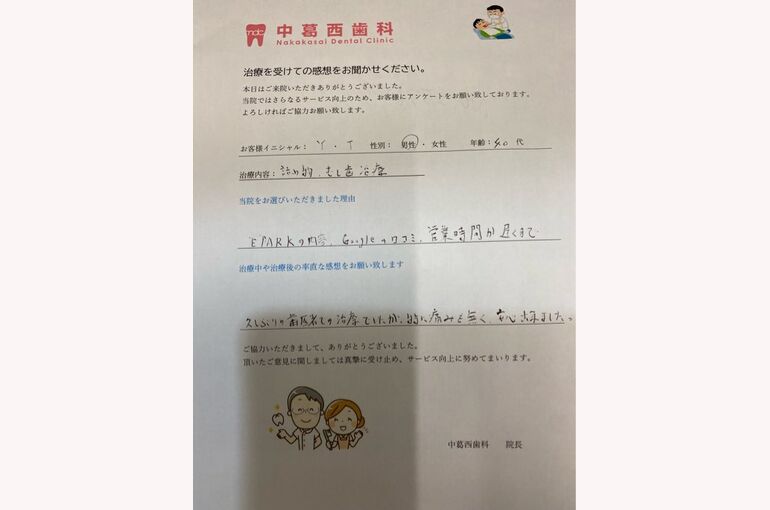 ndc 中葛西歯科
Nakakasai Dental Clinic
治療を受けての感想をお聞かせください。
本日はご来院いただきありがとうございました。
当院ではさらなるサービス向上のため、お客様にアンケートをお願い致しております。
よろしければご協力お願い致します。
お客様イニシャル： Y・T 性別： 男性・女性 年齢：40代
治療内容： 詰め物、むし歯治療
当院をお選びいただきました理由
EPARKの内容、Googleの口コミ、営業時間が遅くまで
治療中や治療後の率直な感想をお願い致します
久しぶりの歯医者での治療でしたが、特に痛みも無く、安心出来ました。
ご協力いただきまして、ありがとうございました。
頂いたご意見に関しましては真摯に受け止め、サービス向上に努めてまいります。
中葛西歯科 院長